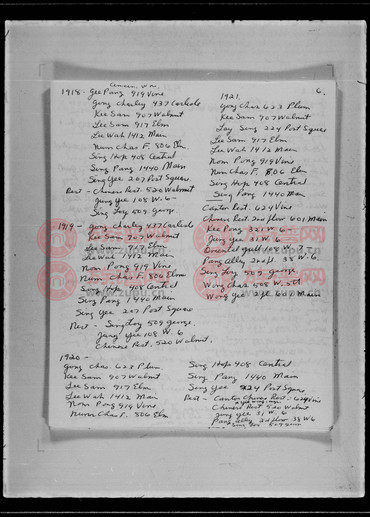 6.
1918 - Gee Pang 919 Vine
Gong Charley 437 Carlisle
Kee Sam 907 Walnut
Lee Sam 917 Elm
Lee Wah 1412 Main
Num Chas F. 806 Elm
Sing Hop 408 Central
Sing Pang 1440 Main
Sing Gee 207 Post Square
Rest - Chinese Rest. 520 Walnut
Jung Gee 108 W. 6 -
Sing Joy 509 George
1919 - Gong Charley 437 Carlisle
Kee Sam 907 Walnut
Lee Sam, 917 Elm
Lee Wah 1412 Main
Nom Pong 919 Vine
Num Chas F. 806 Elm
Sing Hop 408 Central
Sing Pang 1440 Main
Sing Gee 207 Post Square
Rest - Sing Joy 509 George
Jung Gee 108 W. 6
Chinese Rest. 520 Walnut.
1920 -
Gong Chas. 623 Plum
Kee Sam 907 Walnut
Lee Sam 917 Elm
Lee Wah 1412 Main
Nom Pong 919 Vine
Num Chas F. 806 Elm
Sing Hop 408 Central
Sing Pang 1440 Main
Sing Gee 224 Post Square
Rest - Canton Chinese Rest. 624 Vine
Chinese Rest 520 Walnut
Jung Gee 31 W. 6
Pang Alley 2nd floor 38 W 6
Sing Joy 509 George
1921.
Gong Chas 623 Plum
Kee Sam 907 Walnut
Lay Sing 224 Post Square
Lee Sam 917 Elm
Lee Wah 1412 Main
Nom Pong 919 Vine
Num Chas F. 806 Elm
Sing Hop 408 Central
Sing Pang 1440 Main
Canton Rest. 624 Vine
Chinese Rest 2nd floor 601 Main
Kee Pong 321 W 6 -
Jung Gee 31 W. 6
Pang Alley 2nd fl. 38 W. 6.
Sing Joy 509 George
Wong Chas 508 W. 5th
Wong Gee 2 fl. 601 Main